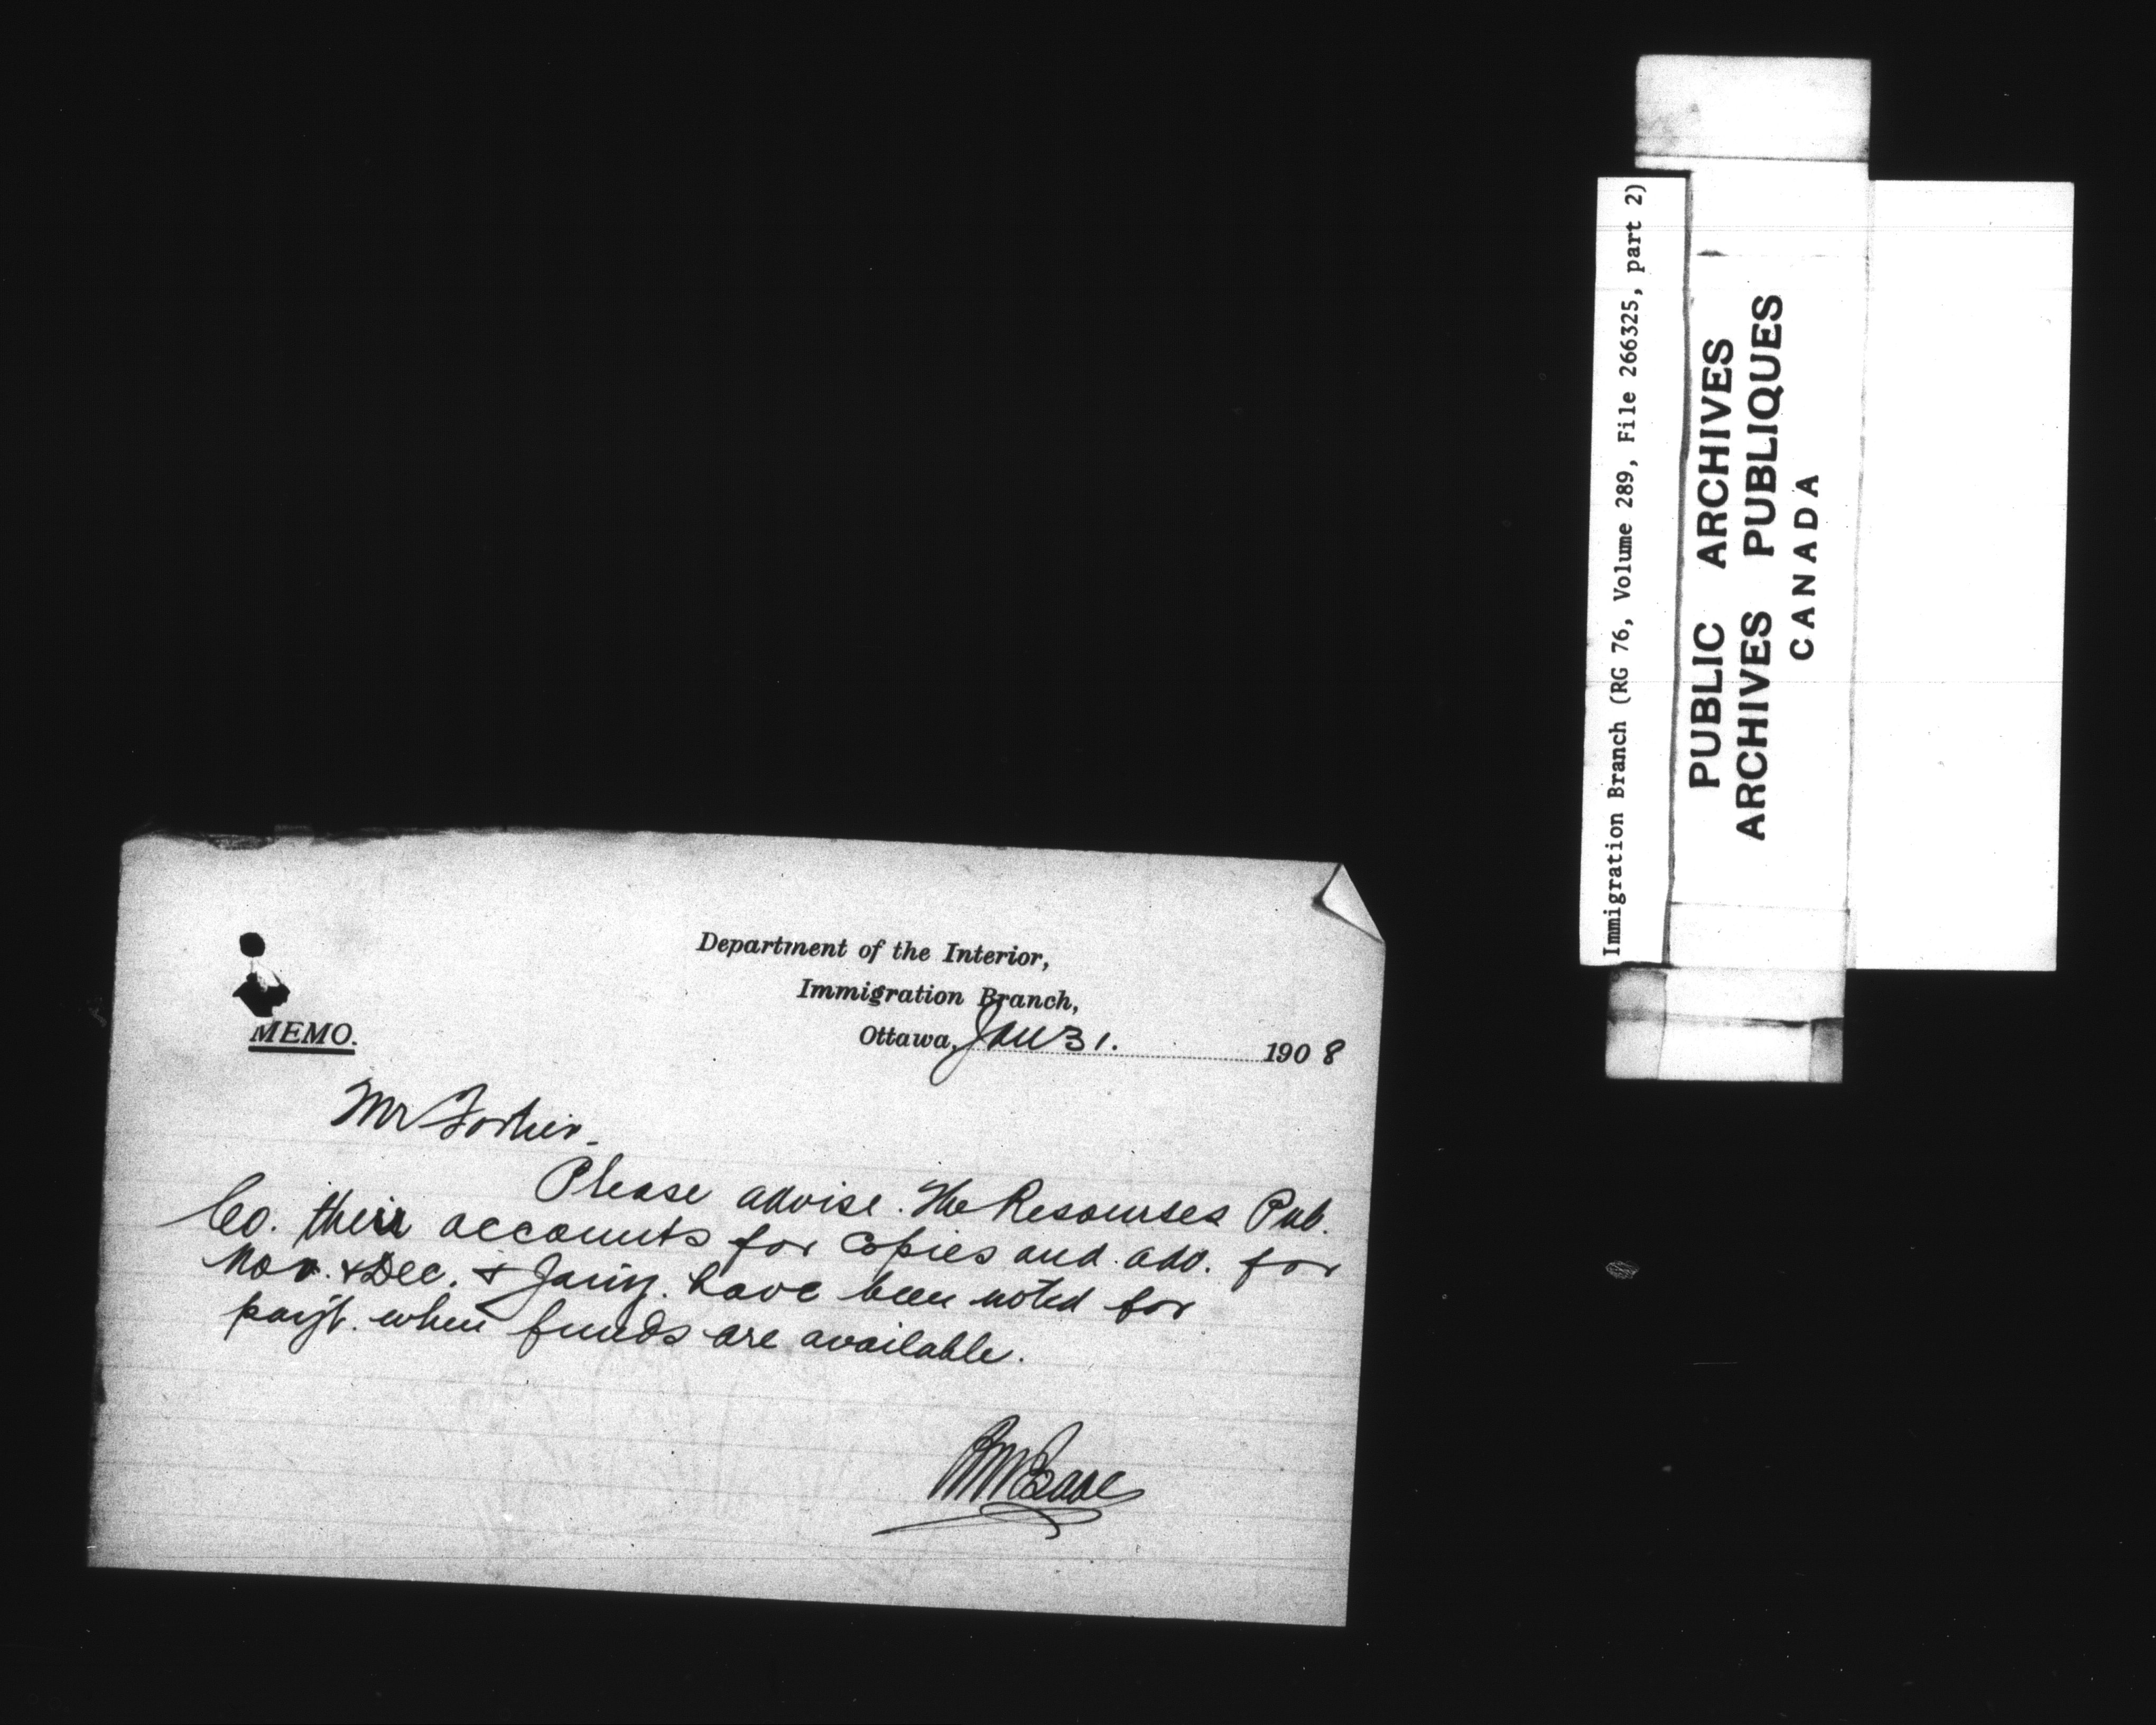 Department of the Interior,
Immigration Branch,
Ottawa, Jan 31. 1908
MEMO.
Mr Fortier.
Please advise. The Resourses Pub.
Co. their accounts for copies and. adv. for
Nov. & Dec. & Jany. have been noted for
payt. when funds are available.
Immigration Branch (RG 76, Volume 289, File 266325, part 2)
PUBLIC ARCHIVES
ARCHIVES PUBLIQUES
CANADA